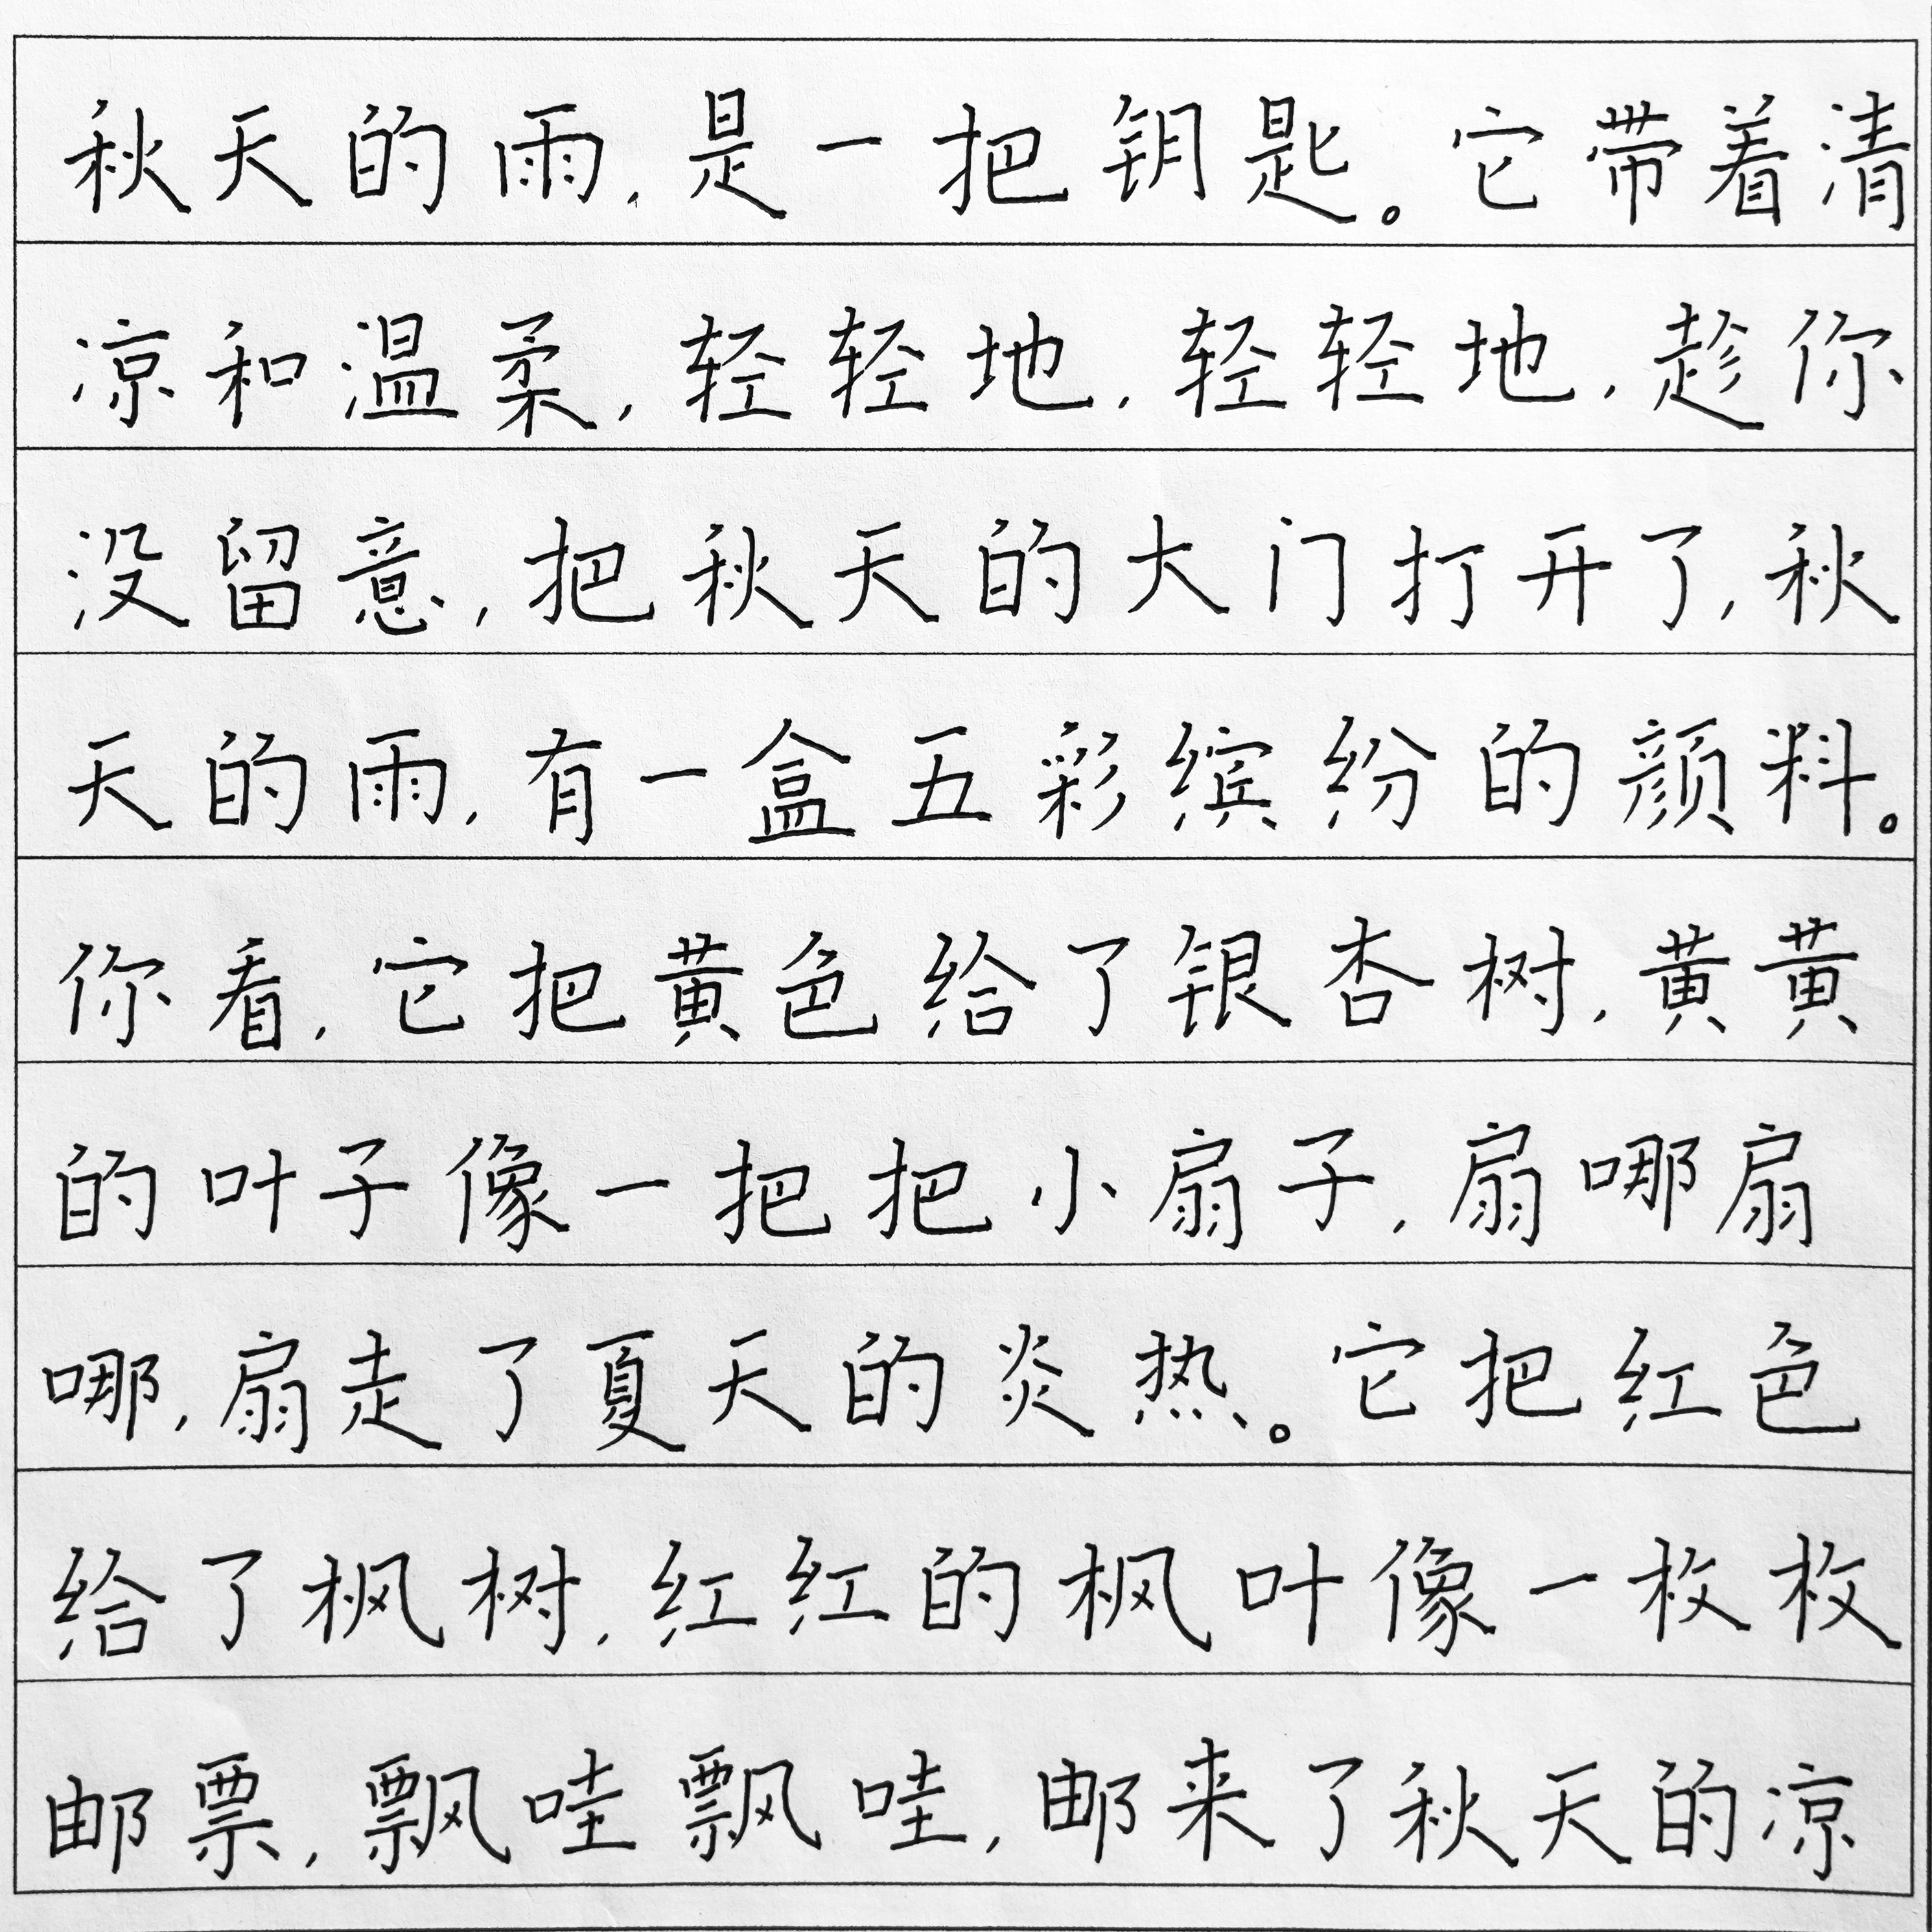 秋天的雨，是一把钥匙。它带着清
凉和温柔，轻轻地，轻轻地，趁你
没留意，把秋天的大门打开了，秋
天的雨，有一盒五彩缤纷的颜料。
你看，它把黄色给了银杏树，黄黄
的叶子像一把把小扇子，扇哪扇
哪，扇走了夏天的炎热。它把红色
给了枫树，红红的枫叶像一枚枚
邮票，飘哇飘哇，邮来了秋天的凉